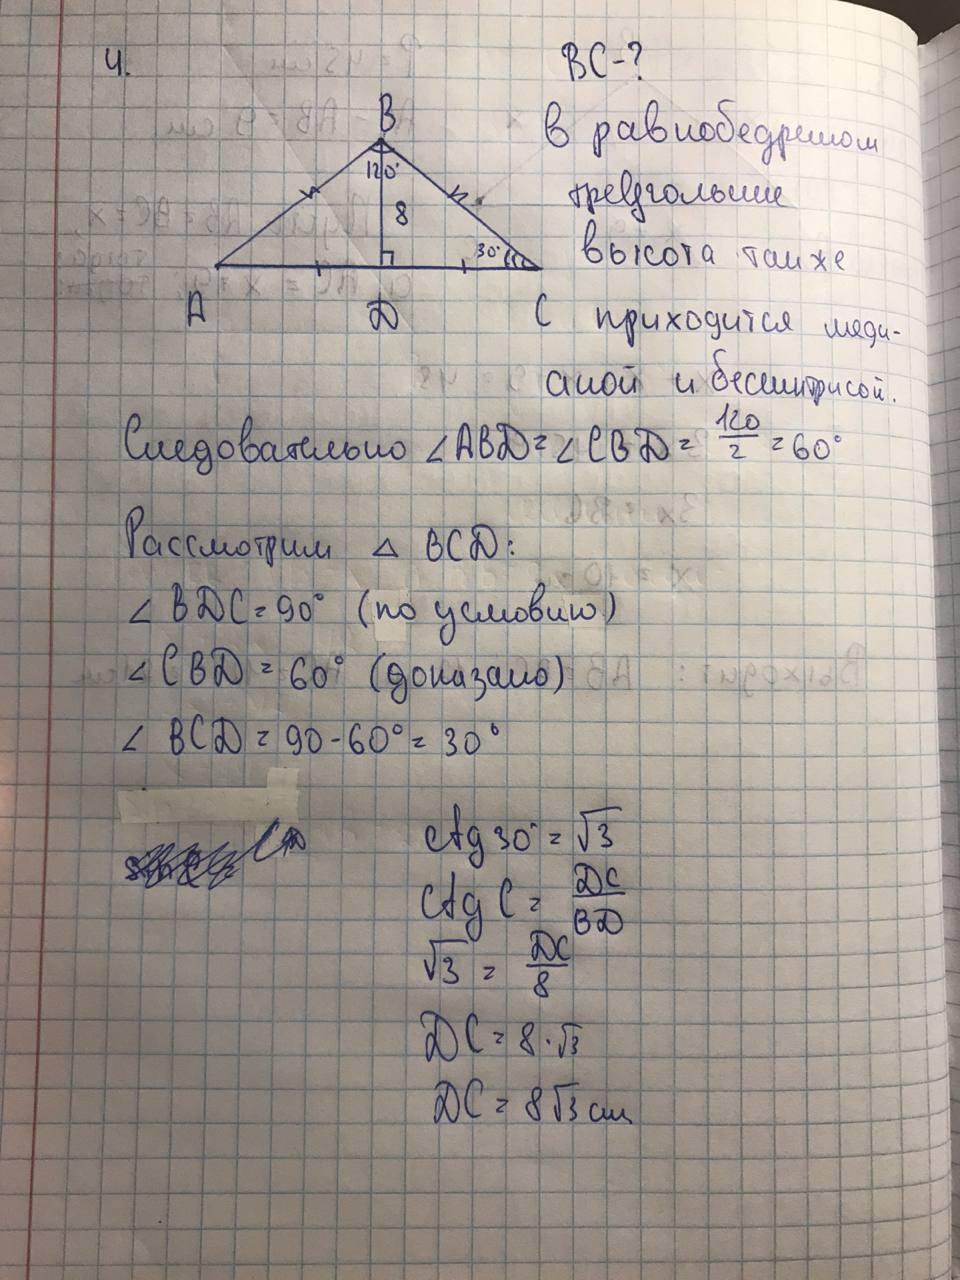 4.
BC-?
B
120°
8
30°
A
D
C
В равнобедреном
треугольнике
высота также
приходится меди-
аной и бесиктрисой.
Следовательно ∠ABD=∠CBD= 120/2 =60°
Рассмотрим △ BCD:
∠BDC=90° (по условию)
∠CBD=60° (доказано)
∠ BCD=90-60°=30°
ctg30°=√3
ctg C= DC/BD
√3 = DC/8
DC=8·√3
DC=8√3см